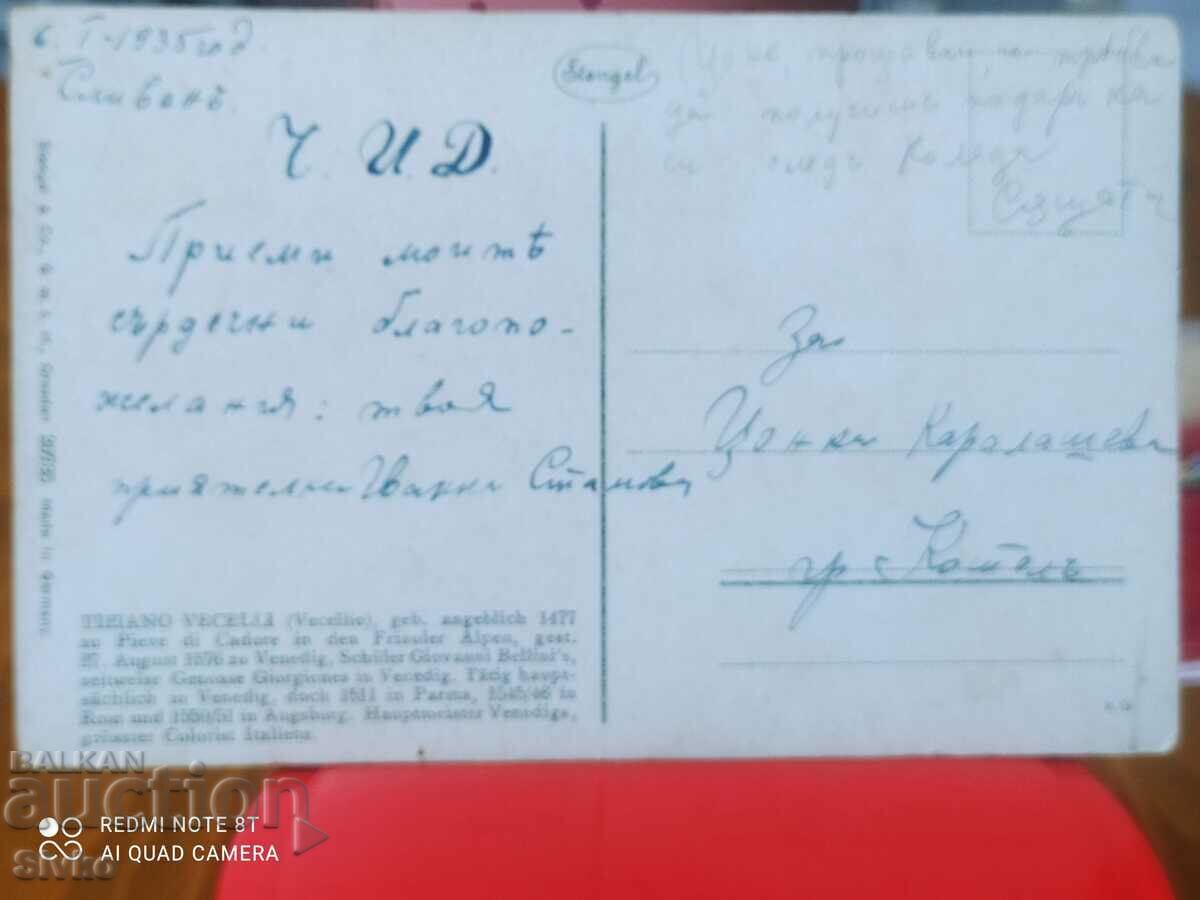 6. I-1935 год
Сливенъ.
Ч. И. Д.
Приеми моитѣ
сърдечни благопо-
желания: твоя
приятелка Иванка Стамова
Stengel
прощавай, че трѣбва
да получишъ подаръка
си следъ Коледа
Сѫщата
За
Цонка Каралашева
гр. Котелъ
Stengel & Co., G. m. b. H., Dresden Made in Germany.
TIZIANO VECELLI (Vecellio), geb. angeblich 1477
zu Pieve di Cadore in den Friauler Alpen, gest.
27. August 1576 zu Venedig, Schüler Giovanni Bellini's,
zeitweise Genosse Giorgiones in Venedig. Tätig haupt-
sächlich zu Venedig, doch 1511 in Padua, 1545/46 in
Rom und 1550/51 in Augsburg. Hauptmeister Venedigs,
grösster Colorist Italiens.
BALKAN
auction
REDMI NOTE 8T
AI QUAD CAMERA
Sivko